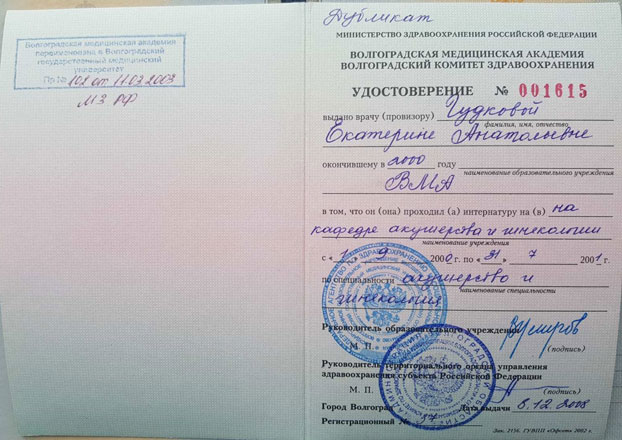 Волгоградская медицинская академия
переименована в Волгоградский
государственный медицинский
университет
Пр № 102 от 11.03.2003
МЗ РФ
Дубликат
МИНИСТЕРСТВО ЗДРАВООХРАНЕНИЯ РОССИЙСКОЙ ФЕДЕРАЦИИ
ВОЛГОГРАДСКАЯ МЕДИЦИНСКАЯ АКАДЕМИЯ
ВОЛГОГРАДСКИЙ КОМИТЕТ ЗДРАВООХРАНЕНИЯ
УДОСТОВЕРЕНИЕ № 001615
выдано врачу (провизору) Гудковой
фамилия, имя, отчество
Екатерине Анатольевне
окончившему в 2000 году
наименование образовательного учреждения
ВМА
в том, что он (она) проходил (а) интернатуру на (в) на
кафедре акушерства и гинекологии
наименование учреждения
с « 1 » 9 2000 г. по « 31 » 7 2001 г.
по специальности акушерство и
наименование специальности
гинекология
Руководитель образовательного учреждения
М. П. (подпись)
Руководитель территориального органа управления
здравоохранения субъекта Российской Федерации
М. П. (подпись)
Город Волгоград Дата выдачи 8.12.2008
Регистрационный №
Зак. 2156. ГУВПП «Офсет» 2002 г.